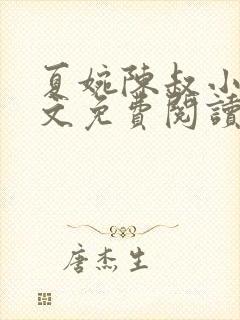 夏婉陳叔小
文免費閱讀
唐杰生